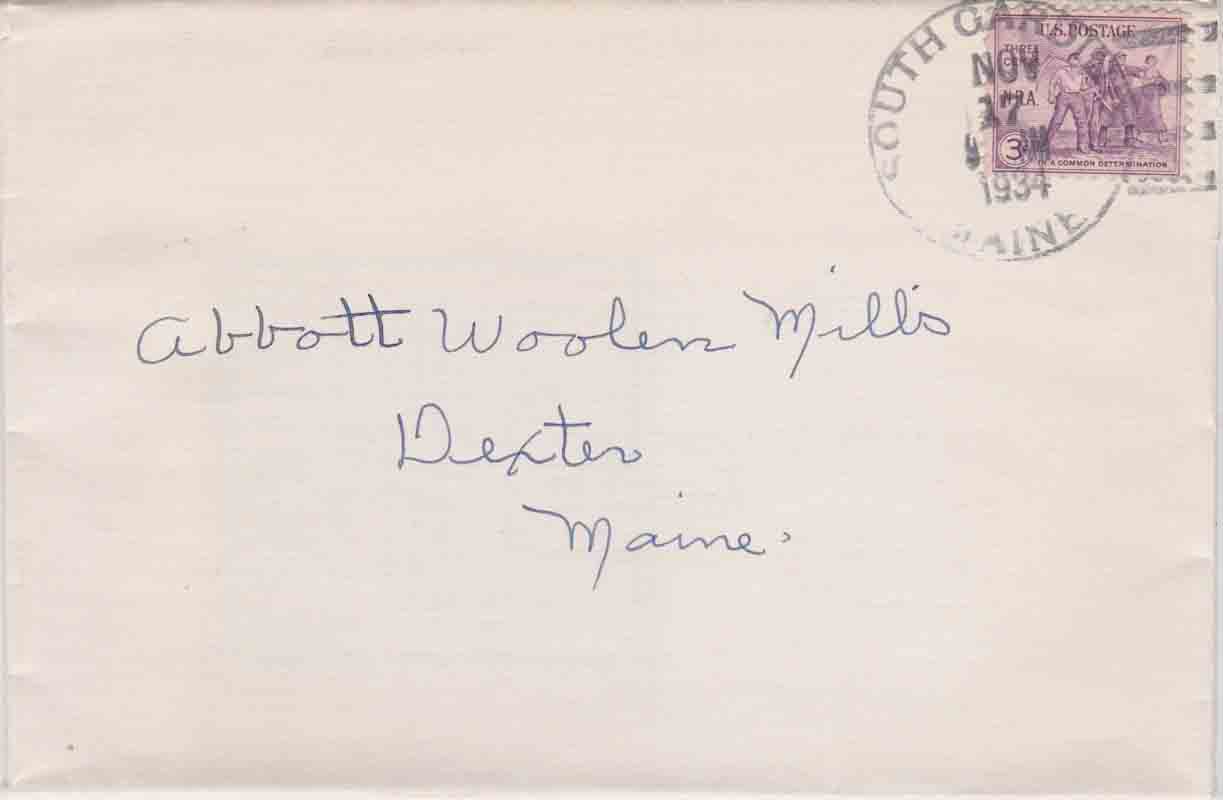 SOUTH GARDI
NOV
17
PM
1934
MAINE
U.S. POSTAGE
THREE
CENTS
N.R.A.
3¢
IN A COMMON DETERMINATION
Abbott Woolen Mills
Dexter
Maine.